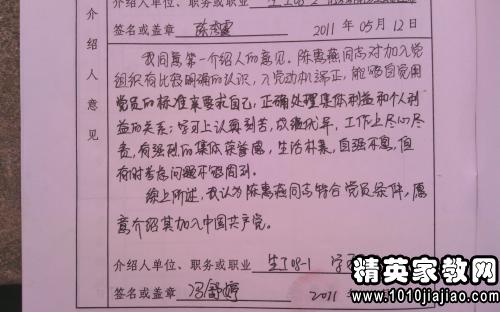 介绍人单位、职务或职业 生工08-2
签名或盖章 陈秀霞 2011年05月12日
介绍人意见
我同意第一介绍人的意见。陈惠燕同志对加入党
组织有比较明确的认识，入党动机端正，能够自觉用
党员的标准来要求自己，正确处理集体利益和个人利
益的关系；学习上认真刻苦，成绩优异，工作上尽心尽
责，有强烈的集体荣誉感，生活朴素，自强不息，但
有时考虑问题不够周到。
综上所述，我认为陈惠燕同志符合党员条件，愿
意介绍其加入中国共产党。
介绍人单位、职务或职业 生工08-1 学
签名或盖章 冯舒婷 2011年
精英家教网
www.1010jiajiao.com